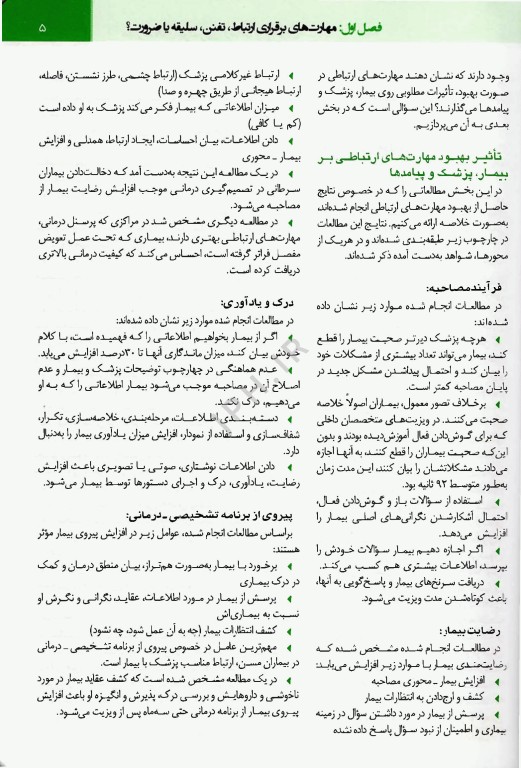 فصل اول: مهارت‌های برقراری ارتباط، تفنن، سلیقه یا ضرورت؟
۵
وجود دارند که نشان دهند مهارت‌های ارتباطی در
صورت بهبود، تأثیرات مطلوبی روی بیمار، پزشک و
پیامدها می‌گذارند؟ این سؤالی است که در بخش
بعدی به آن می‌پردازیم.
تأثیر بهبود مهارت‌های ارتباطی بر
بیمار، پزشک و پیامدها
در این بخش مطالعاتی را که در خصوص نتایج
حاصل از بهبود مهارت‌های ارتباطی انجام شده‌اند،
به‌صورت خلاصه ارائه می‌کنیم. نتایج این مطالعات
در چارچوب زیر طبقه‌بندی شده‌اند و در هریک از
محورها، شواهد به‌دست آمده ذکر شده‌اند.
فرآیند مصاحبه:
در مطالعات انجام شده موارد زیر نشان داده
شده‌اند:
هرچه پزشک دیرتر صحبت بیمار را قطع
کند، بیمار می‌تواند تعداد بیشتری از مشکلات خود
را بیان کند و احتمال پیداشدن مشکل جدید در
پایان مصاحبه کمتر است.
برخلاف تصور معمول، بیماران اصولاً خلاصه
صحبت می‌کنند. در ویزیت‌های متخصصان داخلی
که برای گوش‌دادن فعال آموزش‌دیده بودند و بدون
این‌که صحبت بیماران را قطع کنند، به آنها اجازه
می‌دادند مشکلاتشان را بیان کنند، این مدت زمان
به‌طور متوسط ۹۲ ثانیه بود.
استفاده از سؤالات باز و گوش‌دادن فعال،
احتمال آشکارشدن نگرانی‌های اصلی بیمار را
افزایش می‌دهد.
اگر اجازه دهیم بیمار سؤالات خودش را
بپرسد، اطلاعات بیشتری هم کسب می‌کند.
دریافت سرنخ‌های بیمار و پاسخ‌گویی به آنها،
باعث کوتاه‌شدن مدت ویزیت می‌شود.
رضایت بیمار:
در مطالعات انجام شده مشخص شده که
رضایت‌مندی بیمار با موارد زیر افزایش می‌یابد:
افزایش بیمار ـ محوری مصاحبه
کشف و ارج‌دادن به انتظارات بیمار
پرسش از بیمار در مورد داشتن سؤال در زمینه
بیماری و اطمینان از نبود سؤال پاسخ داده نشده
ارتباط غیرکلامی پزشک (ارتباط چشمی، طرز نشستن، فاصله،
ارتباط هیجانی از طریق چهره و صدا)
میزان اطلاعاتی که بیمار فکر می‌کند پزشک به او داده است
(کم یا کافی)
دادن اطلاعات، بیان احساسات، ایجاد ارتباط، همدلی و افزایش
بیمار ـ محوری
در یک مطالعه این نتیجه به‌دست آمد که دخالت‌دادن بیماران
سرطانی در تصمیم‌گیری درمانی موجب افزایش رضایت بیمار از
مصاحبه می‌شود.
در مطالعه دیگری مشخص شد در مراکزی که پرسنل درمانی،
مهارت‌های ارتباطی بهتری دارند، بیماری که تحت عمل تعویض
مفصل قرار گرفته است، احساس می‌کند که کیفیت درمانی بالاتری
دریافت کرده است.
درک و یادآوری:
در مطالعات انجام شده موارد زیر نشان داده شده‌اند:
اگر از بیمار بخواهیم اطلاعاتی را که فهمیده است، با کلام
خودش بیان کند، میزان ماندگاری آنها تا ۳۰درصد افزایش می‌یابد.
عدم هماهنگی در چهارچوب توضیحات پزشک و بیمار و عدم
اصلاح آن در مصاحبه موجب می‌شود بیمار اطلاعاتی را که به او
می‌دهیم، درک نکند.
دسته‌بندی اطلاعات، مرحله‌بندی، خلاصه‌سازی، تکرار،
شفاف‌سازی و استفاده از نمودار، افزایش میزان یادآوری بیمار را به‌دنبال
دارد.
دادن اطلاعات نوشتاری، صوتی یا تصویری باعث افزایش
رضایت، یادآوری، درک و اجرای دستورها توسط بیمار می‌شود.
پیروی از برنامه تشخیصی ـ درمانی:
براساس مطالعات انجام شده، عوامل زیر در افزایش پیروی بیمار مؤثر
هستند:
برخورد با بیمار به‌صورت هم‌تراز، بیان منطق درمان و کمک
در درک بیماری
پرسش از بیمار در مورد اطلاعات، عقاید، نگرانی و نگرش او
نسبت به بیماری‌اش
کشف انتظارات بیمار (چه به آن عمل شود، چه نشود)
مهم‌ترین عامل در خصوص پیروی از برنامه تشخیصی ـ درمانی
در بیماران مسن، ارتباط مناسب پزشک با بیمار است.
در یک مطالعه مشخص شده است که کشف عقاید بیمار در مورد
ناخوشی و داروهایش و بررسی درک، پذیرش و انگیزه او باعث افزایش
پیروی بیمار از برنامه درمانی حتی سه‌ماه پس از ویزیت می‌شود.